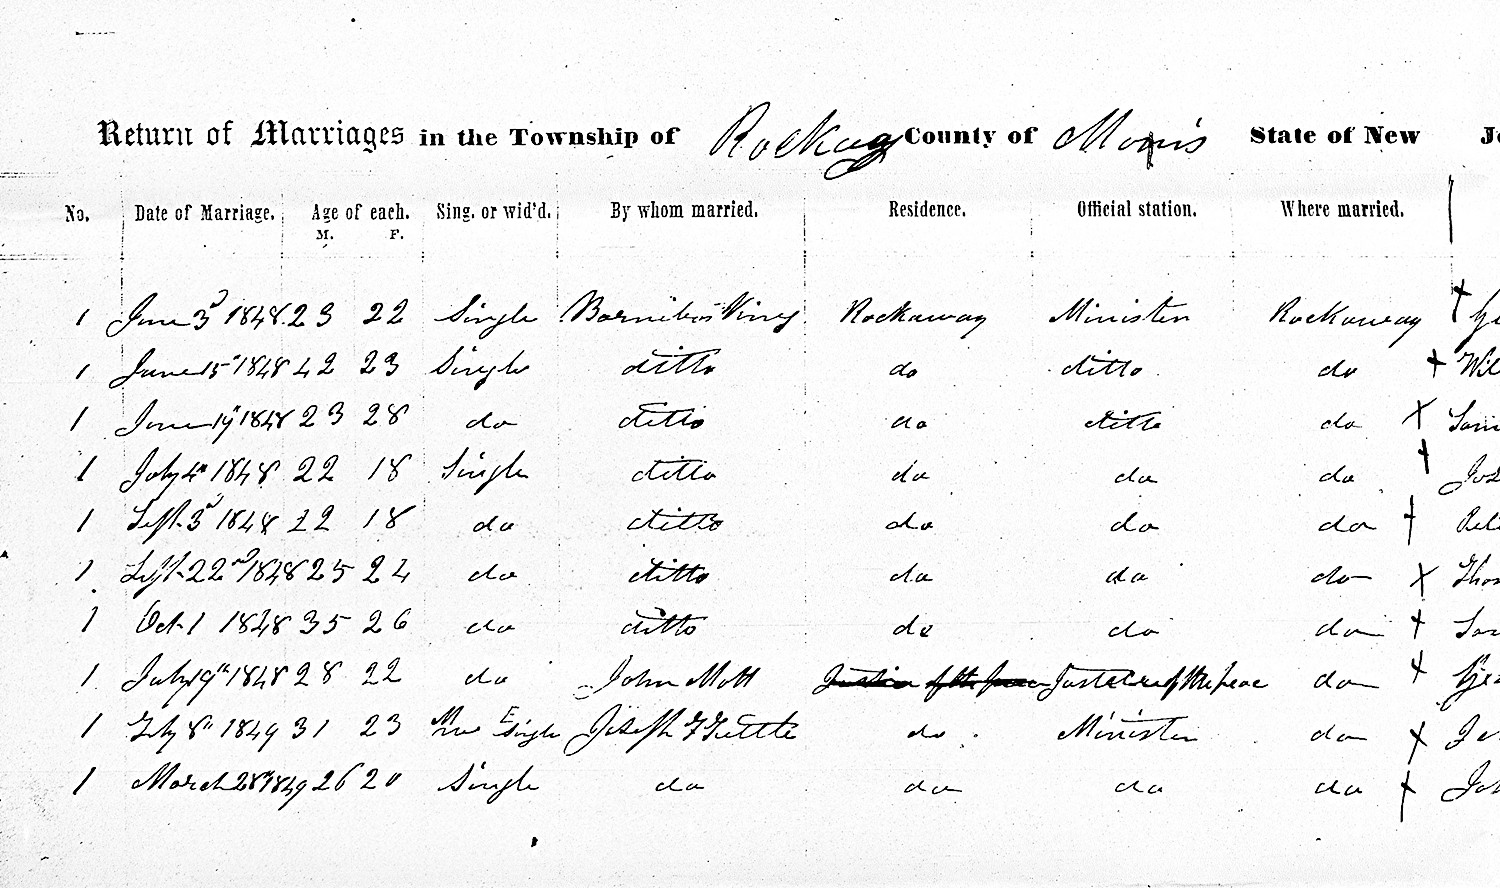 Return of Marriages in the Township of Rockaway County of Morris State of New
No. Date of Marriage. Age of each. Sing. or wid'd. By whom married. Residence. Official station. Where married.
M. F.
1 June 3d 1848 23 22 Single Barnibas Viney Rockaway Minister Rockaway
1 June 15th 1848 42 23 Single ditto do ditto do Wil
1 June 19th 1848 23 28 do ditto do ditto do
1 July 4th 1848 22 18 Single ditto do do do Jos
1 Sept. 3d 1848 22 18 do ditto do do do
1 Sept. 22nd 1848 25 24 do ditto do do do Thos
1 Oct. 1 1848 35 26 do ditto do do do
1 July 19th 1848 28 22 do John Mott Justice of the Peace Justice of the peace do
1 Feby 8th 1849 31 23 M F Single Joseph F Tuttle do Minister do
1 March 28th 1849 26 20 Single do do do do Joh